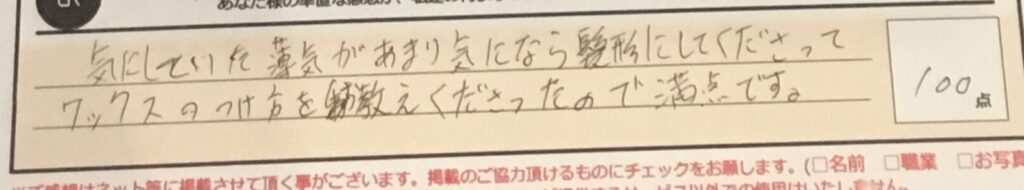 あなた様の率直な感想が、
気にしていた薄気があまり気になら髪形にしてくださって
ワックスのつけ方を教えくださったので満点です。
100点
※ご感想はネット等に掲載させて頂く事がございます。掲載のご協力頂けるものにチェックをお願します。(□名前 □職業 □お写真